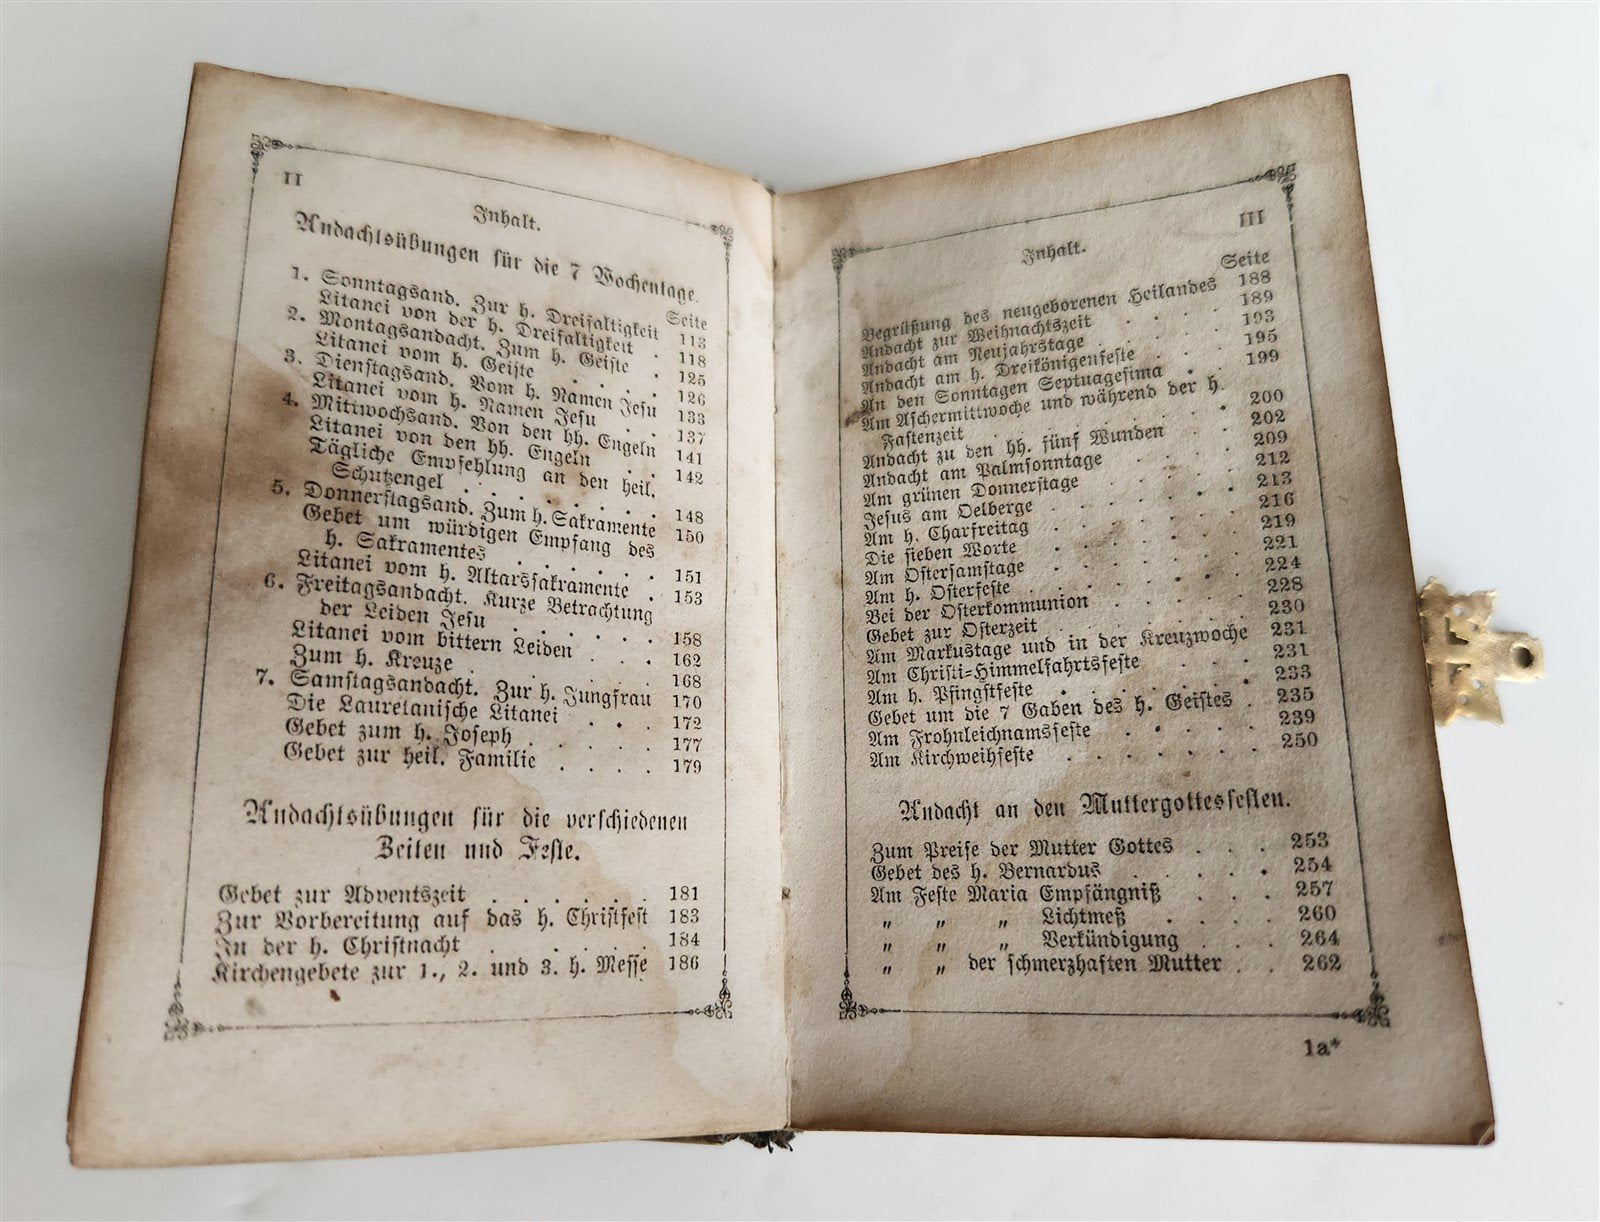 II
Inhalt.
Andachtsübungen für die 7 Wochentage.
Seite
1. Sonntagsand. Zur h. Dreifaltigkeit 113
Litanei von der h. Dreifaltigkeit . 118
2. Montagsandacht. Zum h. Geiste . 125
Litanei vom h. Geiste . . . . 126
3. Dienstagsand. Vom h. Namen Jesu 133
Litanei vom h. Namen Jesu . . 137
4. Mittwochsand. Von den hh. Engeln 141
Litanei von den hh. Engeln . . 142
Tägliche Empfehlung an den heil.
Schutzengel . . . . . . . 148
5. Donnerstagsand. Zum h. Sakramente 150
Gebet um würdigen Empfang des
h. Sakramentes . . . . . . 151
Litanei vom h. Altarssakramente . 153
6. Freitagsandacht. Kurze Betrachtung
der Leiden Jesu . . . . . . 158
Litanei vom bittern Leiden . . . 162
Zum h. Kreuze . . . . . . 168
7. Samstagsandacht. Zur h. Jungfrau 170
Die Lauretanische Litanei . . . 172
Gebet zum h. Joseph . . . . . 177
Gebet zur heil. Familie . . . . 179
Andachtsübungen für die verschiedenen
Zeiten und Feste.
Gebet zur Adventszeit . . . . . . 181
Zur Vorbereitung auf das h. Christfest 183
In der h. Christnacht . . . . . . 184
Kirchengebete zur 1., 2. und 3. h. Messe 186
III
Inhalt.
Seite
Begrüßung des neugeborenen Heilandes 188
Andacht zur Weihnachtszeit . . . . 189
Andacht am Neujahrstage . . . . . 193
Andacht am h. Dreikönigenfeste . . . 195
An den Sonntagen Septuagesima . . 199
Am Aschermittwoche und während der h.
Fastenzeit . . . . . . . . 200
Andacht zu den hh. fünf Wunden . . 202
Andacht am Palmsonntage . . . . 209
Am grünen Donnerstage . . . . . 212
Jesus am Oelberge . . . . . . . 213
Am h. Charfreitag . . . . . . . 216
Die sieben Worte . . . . . . . 219
Am Ostersamstage . . . . . . . 221
Am h. Osterfeste . . . . . . . 224
Bei der Osterkommunion . . . . . 228
Gebet zur Osterzeit . . . . . . 230
Am Markustage und in der Kreuzwoche 231
Am Christi=Himmelfahrtsfeste . . . 231
Am h. Pfingstfeste . . . . . . . 233
Gebet um die 7 Gaben des h. Geistes . 235
Am Frohnleichnamsfeste . . . . . 239
Am Kirchweihfeste . . . . . . . 250
Andacht an den Muttergottesfesten.
Zum Preise der Mutter Gottes . . . 253
Gebet des h. Bernardus . . . . . 254
Am Feste Maria Empfängniß . . . 257
„ „ „ Lichtmeß . . . . 260
„ „ „ Verkündigung . . . 264
„ „ der schmerzhaften Mutter . . 262
1a*